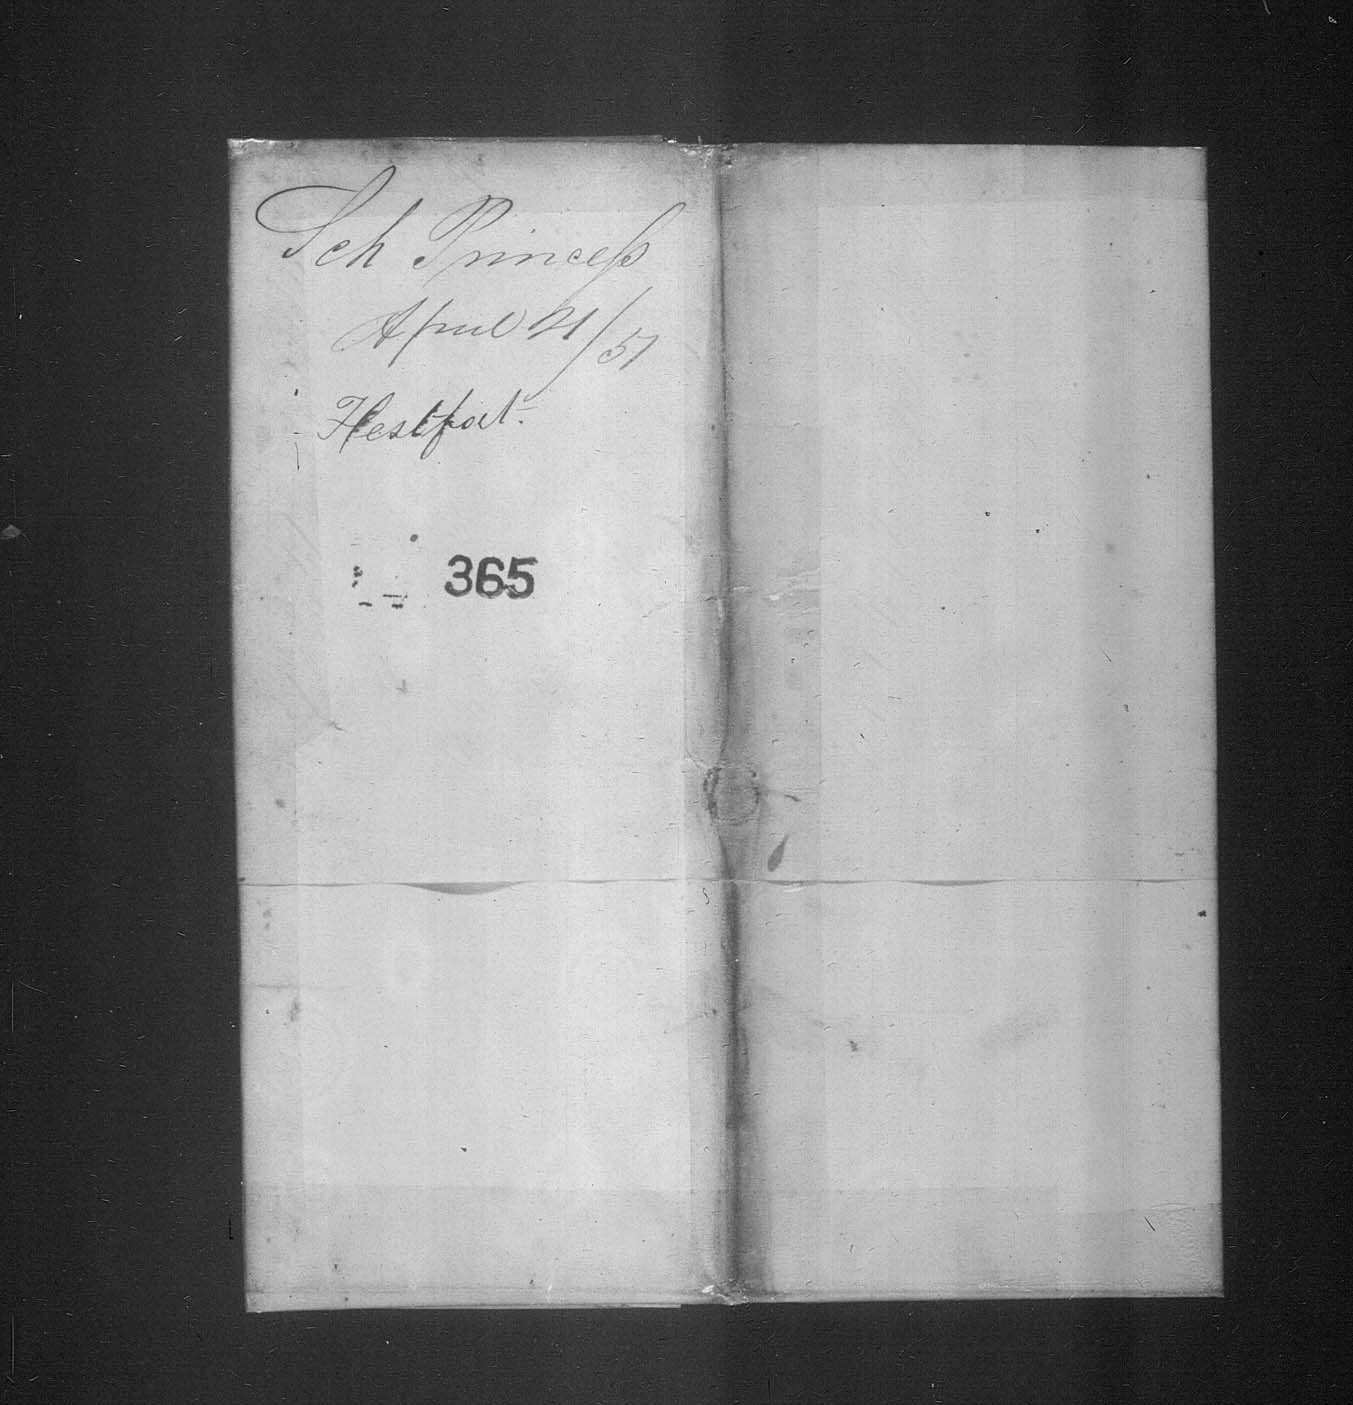 Sch Princess
April 21/57
Westport.
365